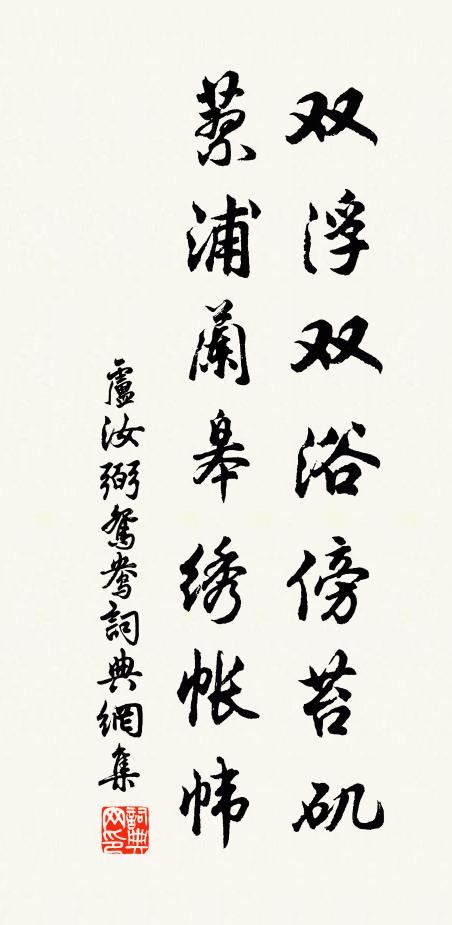 双浮双浴傍苔矶
蓼浦蘭皋绣帐帏
盧汝弼鴛鴦詞典網集
詞典
网印